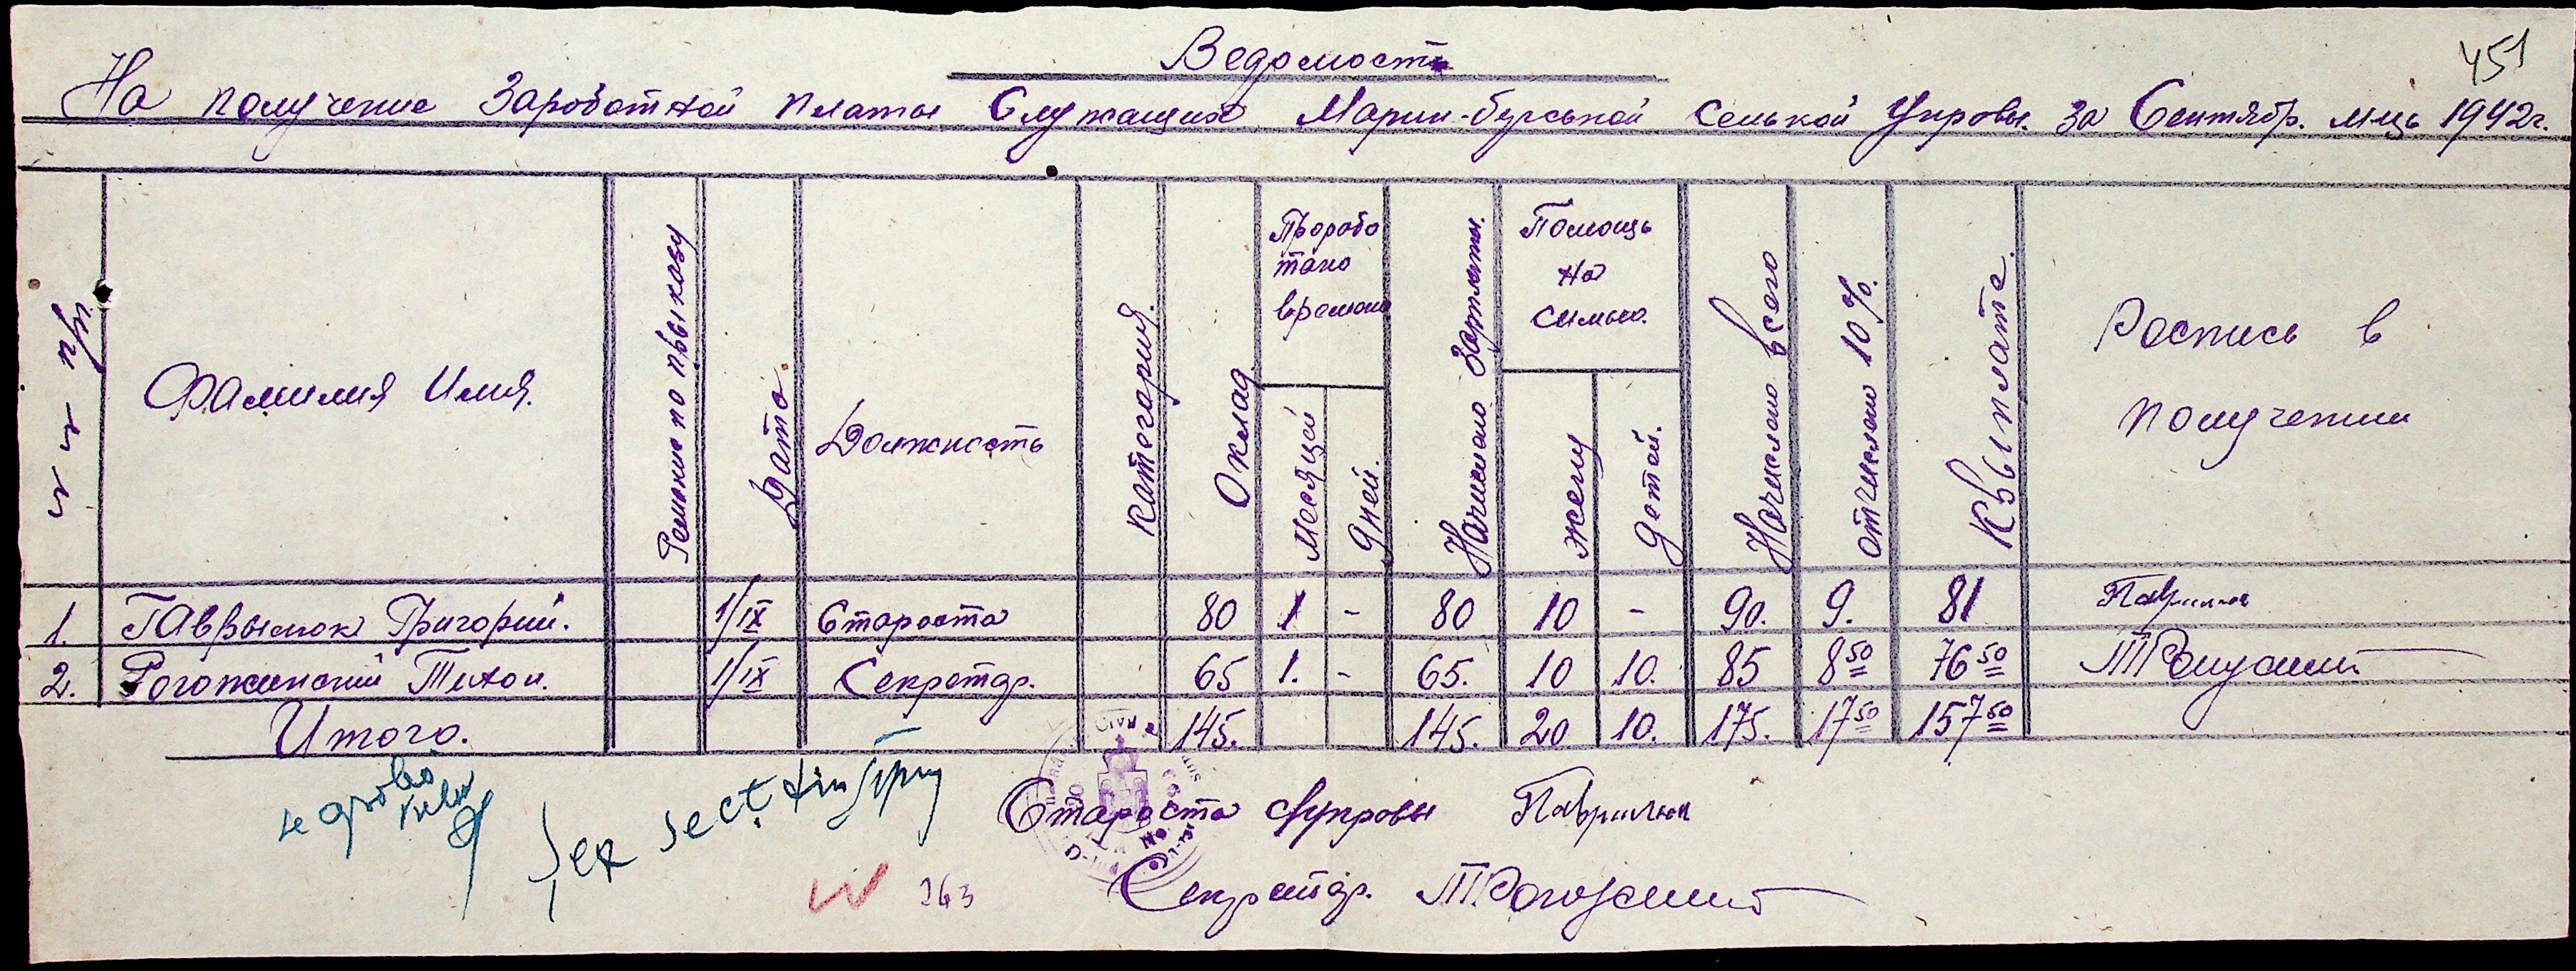 Ведомость
451
На получение Заработной платы Служащих Марин-бурськой Сельской Управы. за Сентябр. м-ць 1942г.
п/п
Фамилия Имя.
Дата.
Должность
Категория.
Оклад
Прорабо
тано
времени
Месяцей
Дней.
Начислено Зарплаты.
Помощь
на
семью.
жену
детей.
Начислено всего
отчислено 10%.
К выплате.
Роспись в
получении
1. Гаврылюк Григорий. 1/IX Староста 80 1 - 80 10 - 90. 9. 81 Гаврилюк
2. Рогожинский Тихон. 1/IX Секретар. 65 1. - 65. 10 10. 85 8 50 76 50
Итого. 145. 145. 20 10. 175. 17 50 157 50
Староста с/управы Гаврилюк
Șef sect
263
Секретар. Т Рогожинский